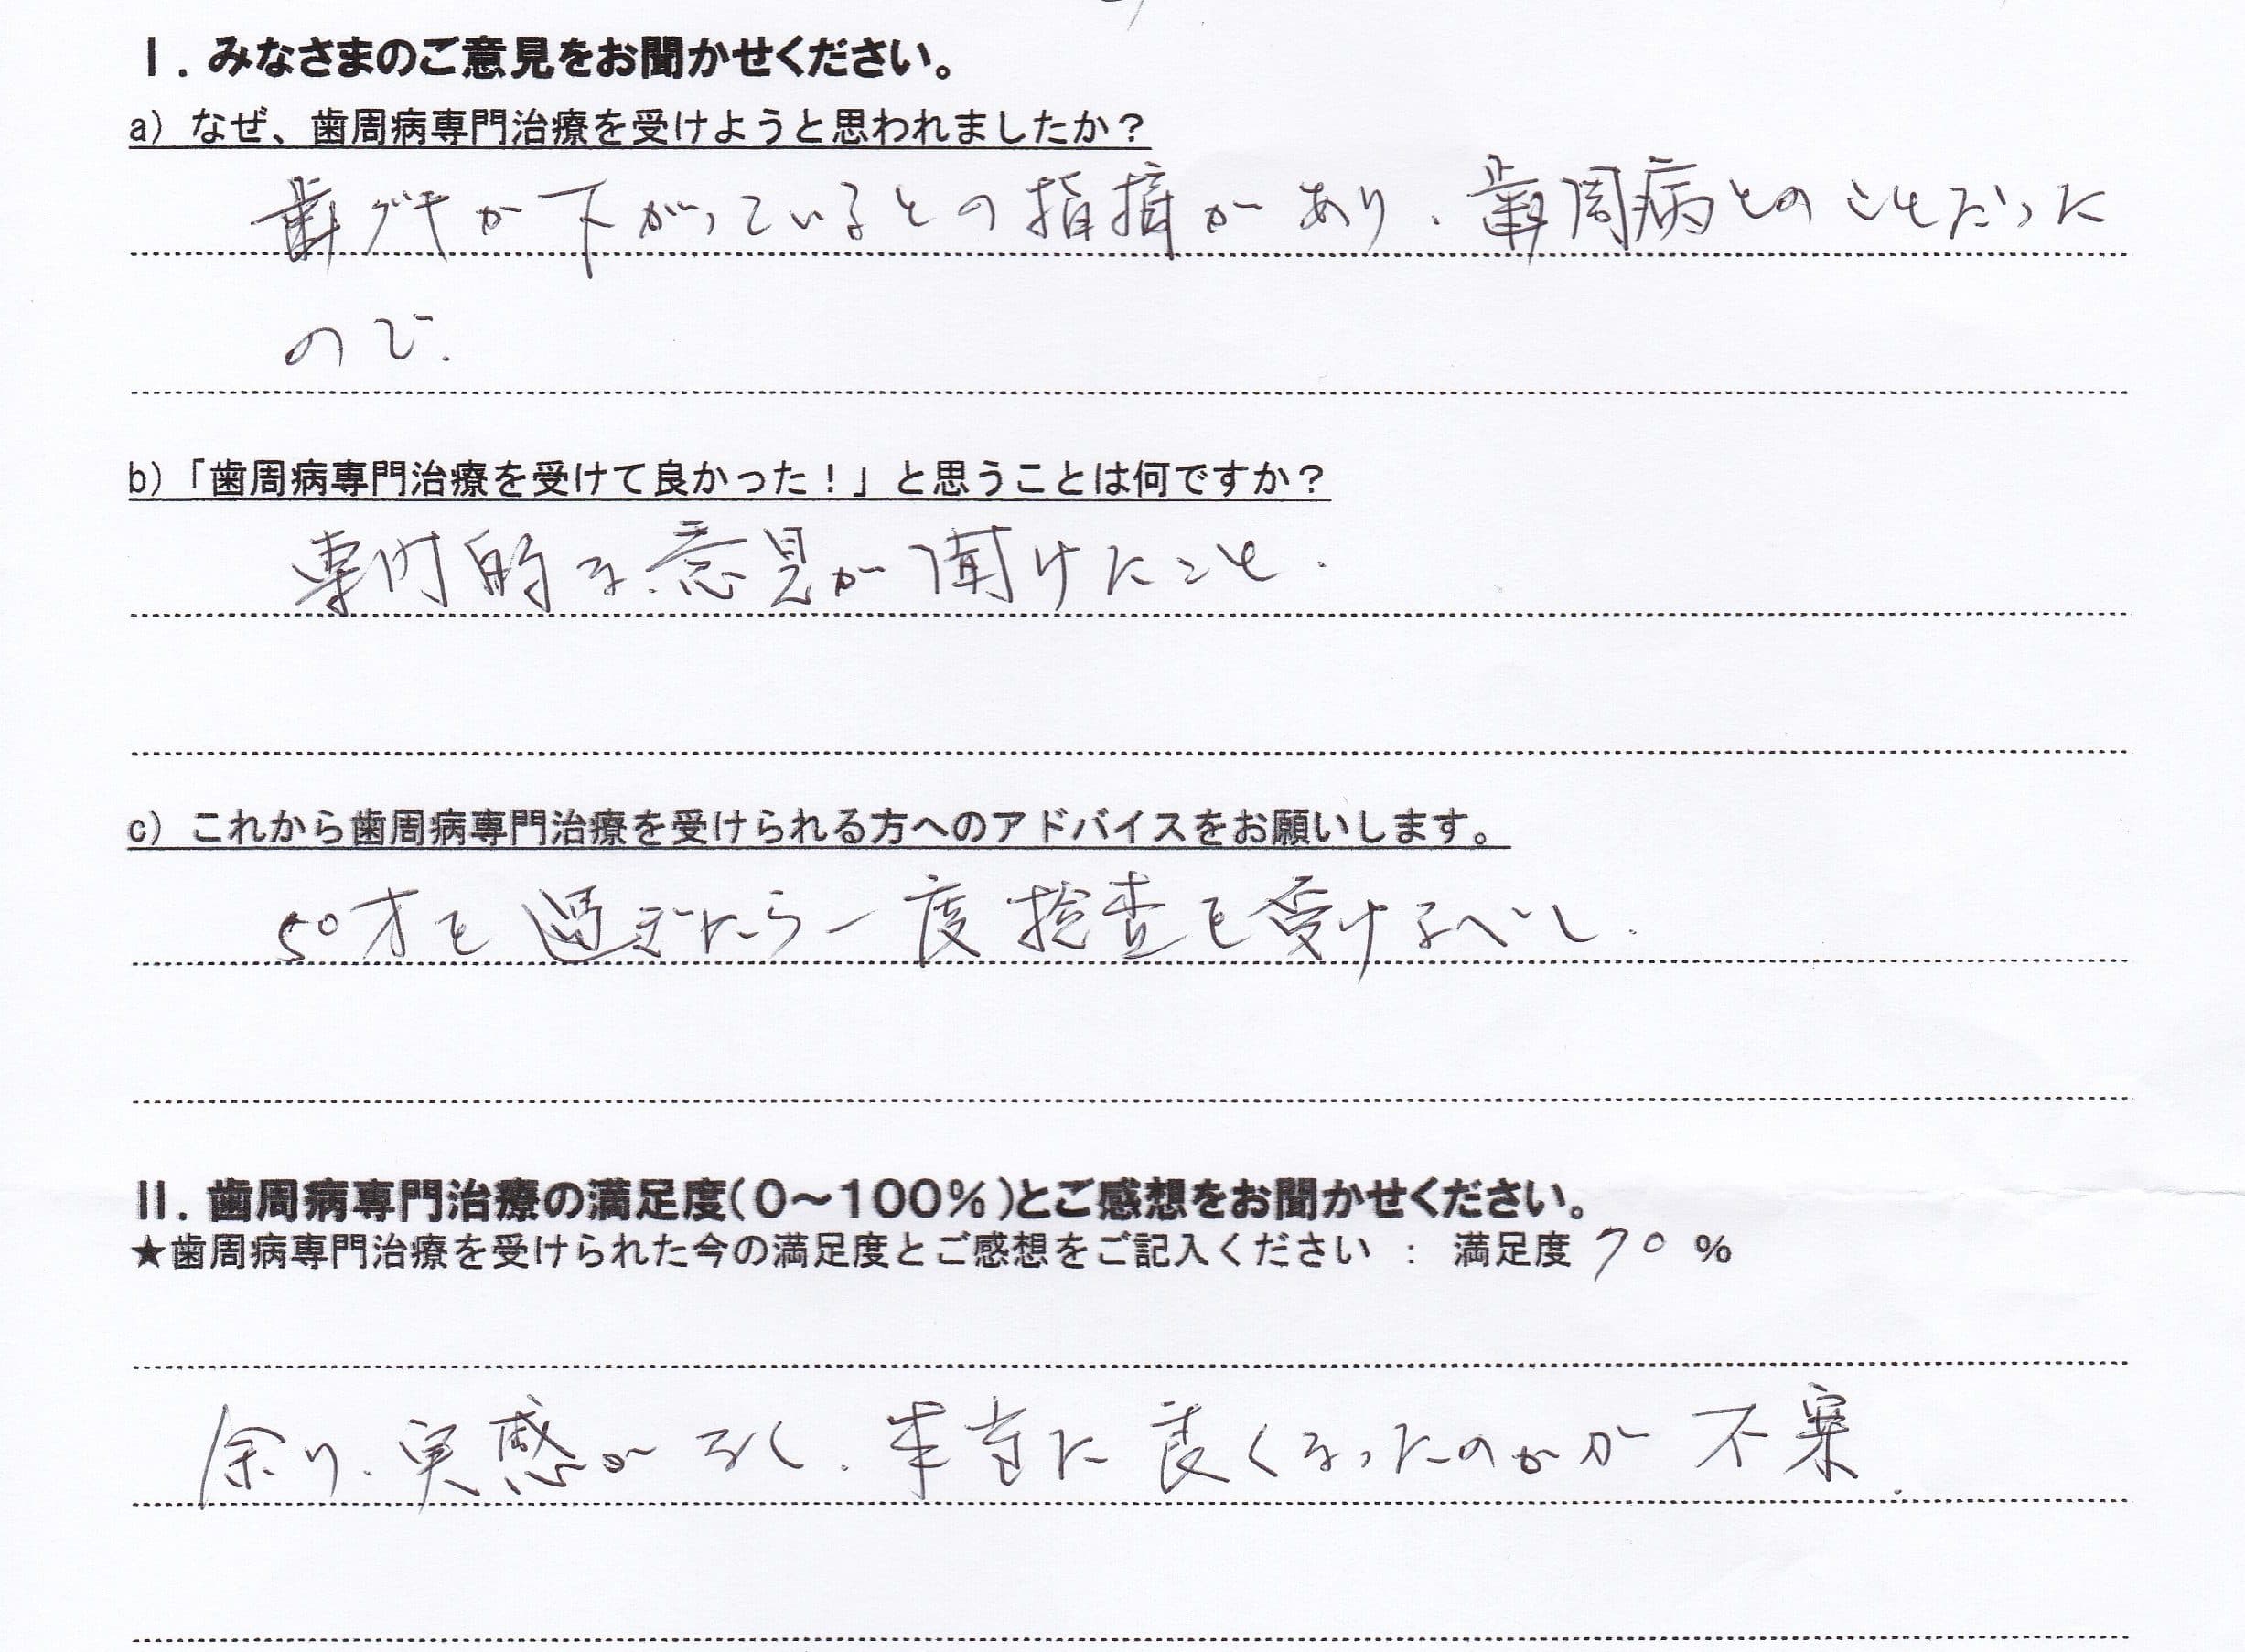 I. みなさまのご意見をお聞かせください。
a) なぜ、歯周病専門治療を受けようと思われましたか？
歯グキが下がっているとの指摘があり、歯周病とのことだった
ので.
b)「歯周病専門治療を受けて良かった！」と思うことは何ですか？
専門的な意見が聞けたこと.
c) これから歯周病専門治療を受けられる方へのアドバイスをお願いします。
50才を過ぎたら一度検査を受けるべし.
II. 歯周病専門治療の満足度(0～100%)とご感想をお聞かせください。
★歯周病専門治療を受けられた今の満足度とご感想をご記入ください ： 満足度 70 %
余り、実感がなく、本当に良くなったのかが不案.